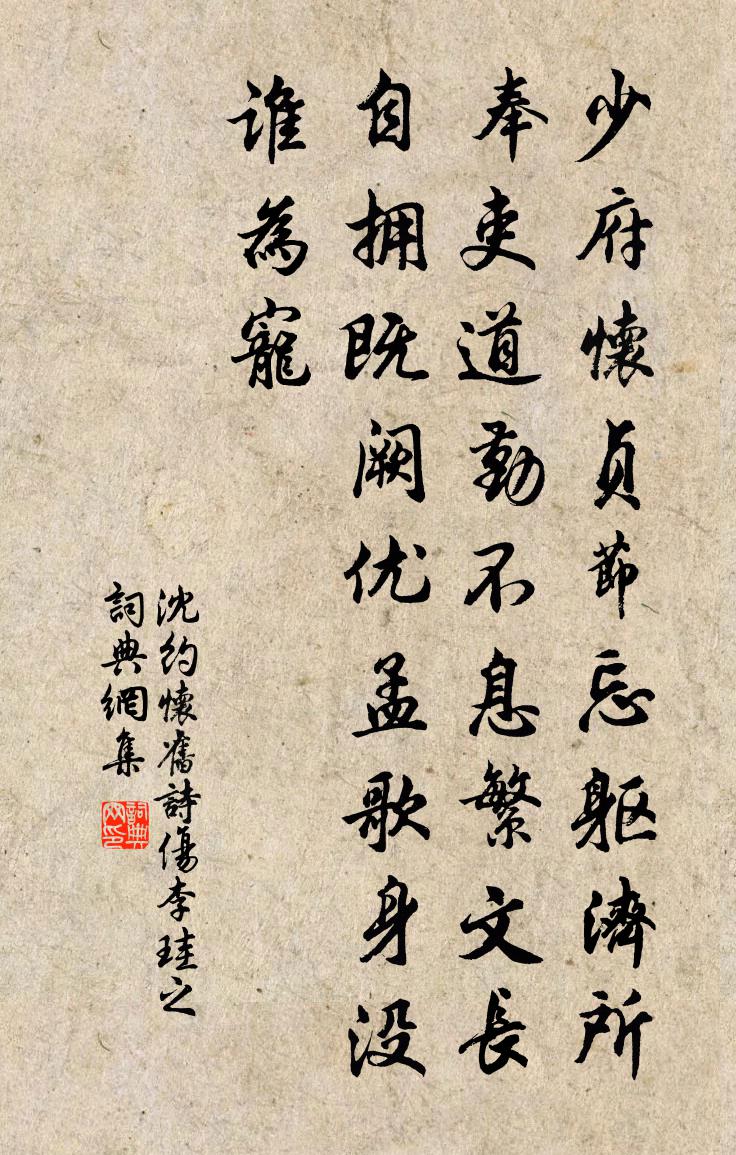 少府懷貞節忘躯濟所
奉吏道勤不息繁文長
自拥既阙优孟歌身没
誰為寵
沈約懷舊詩傷李珪之
詞典網集
詞典網印